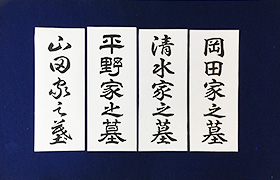 岡田家之墓
清水家之墓
平野家之墓
山田家之墓